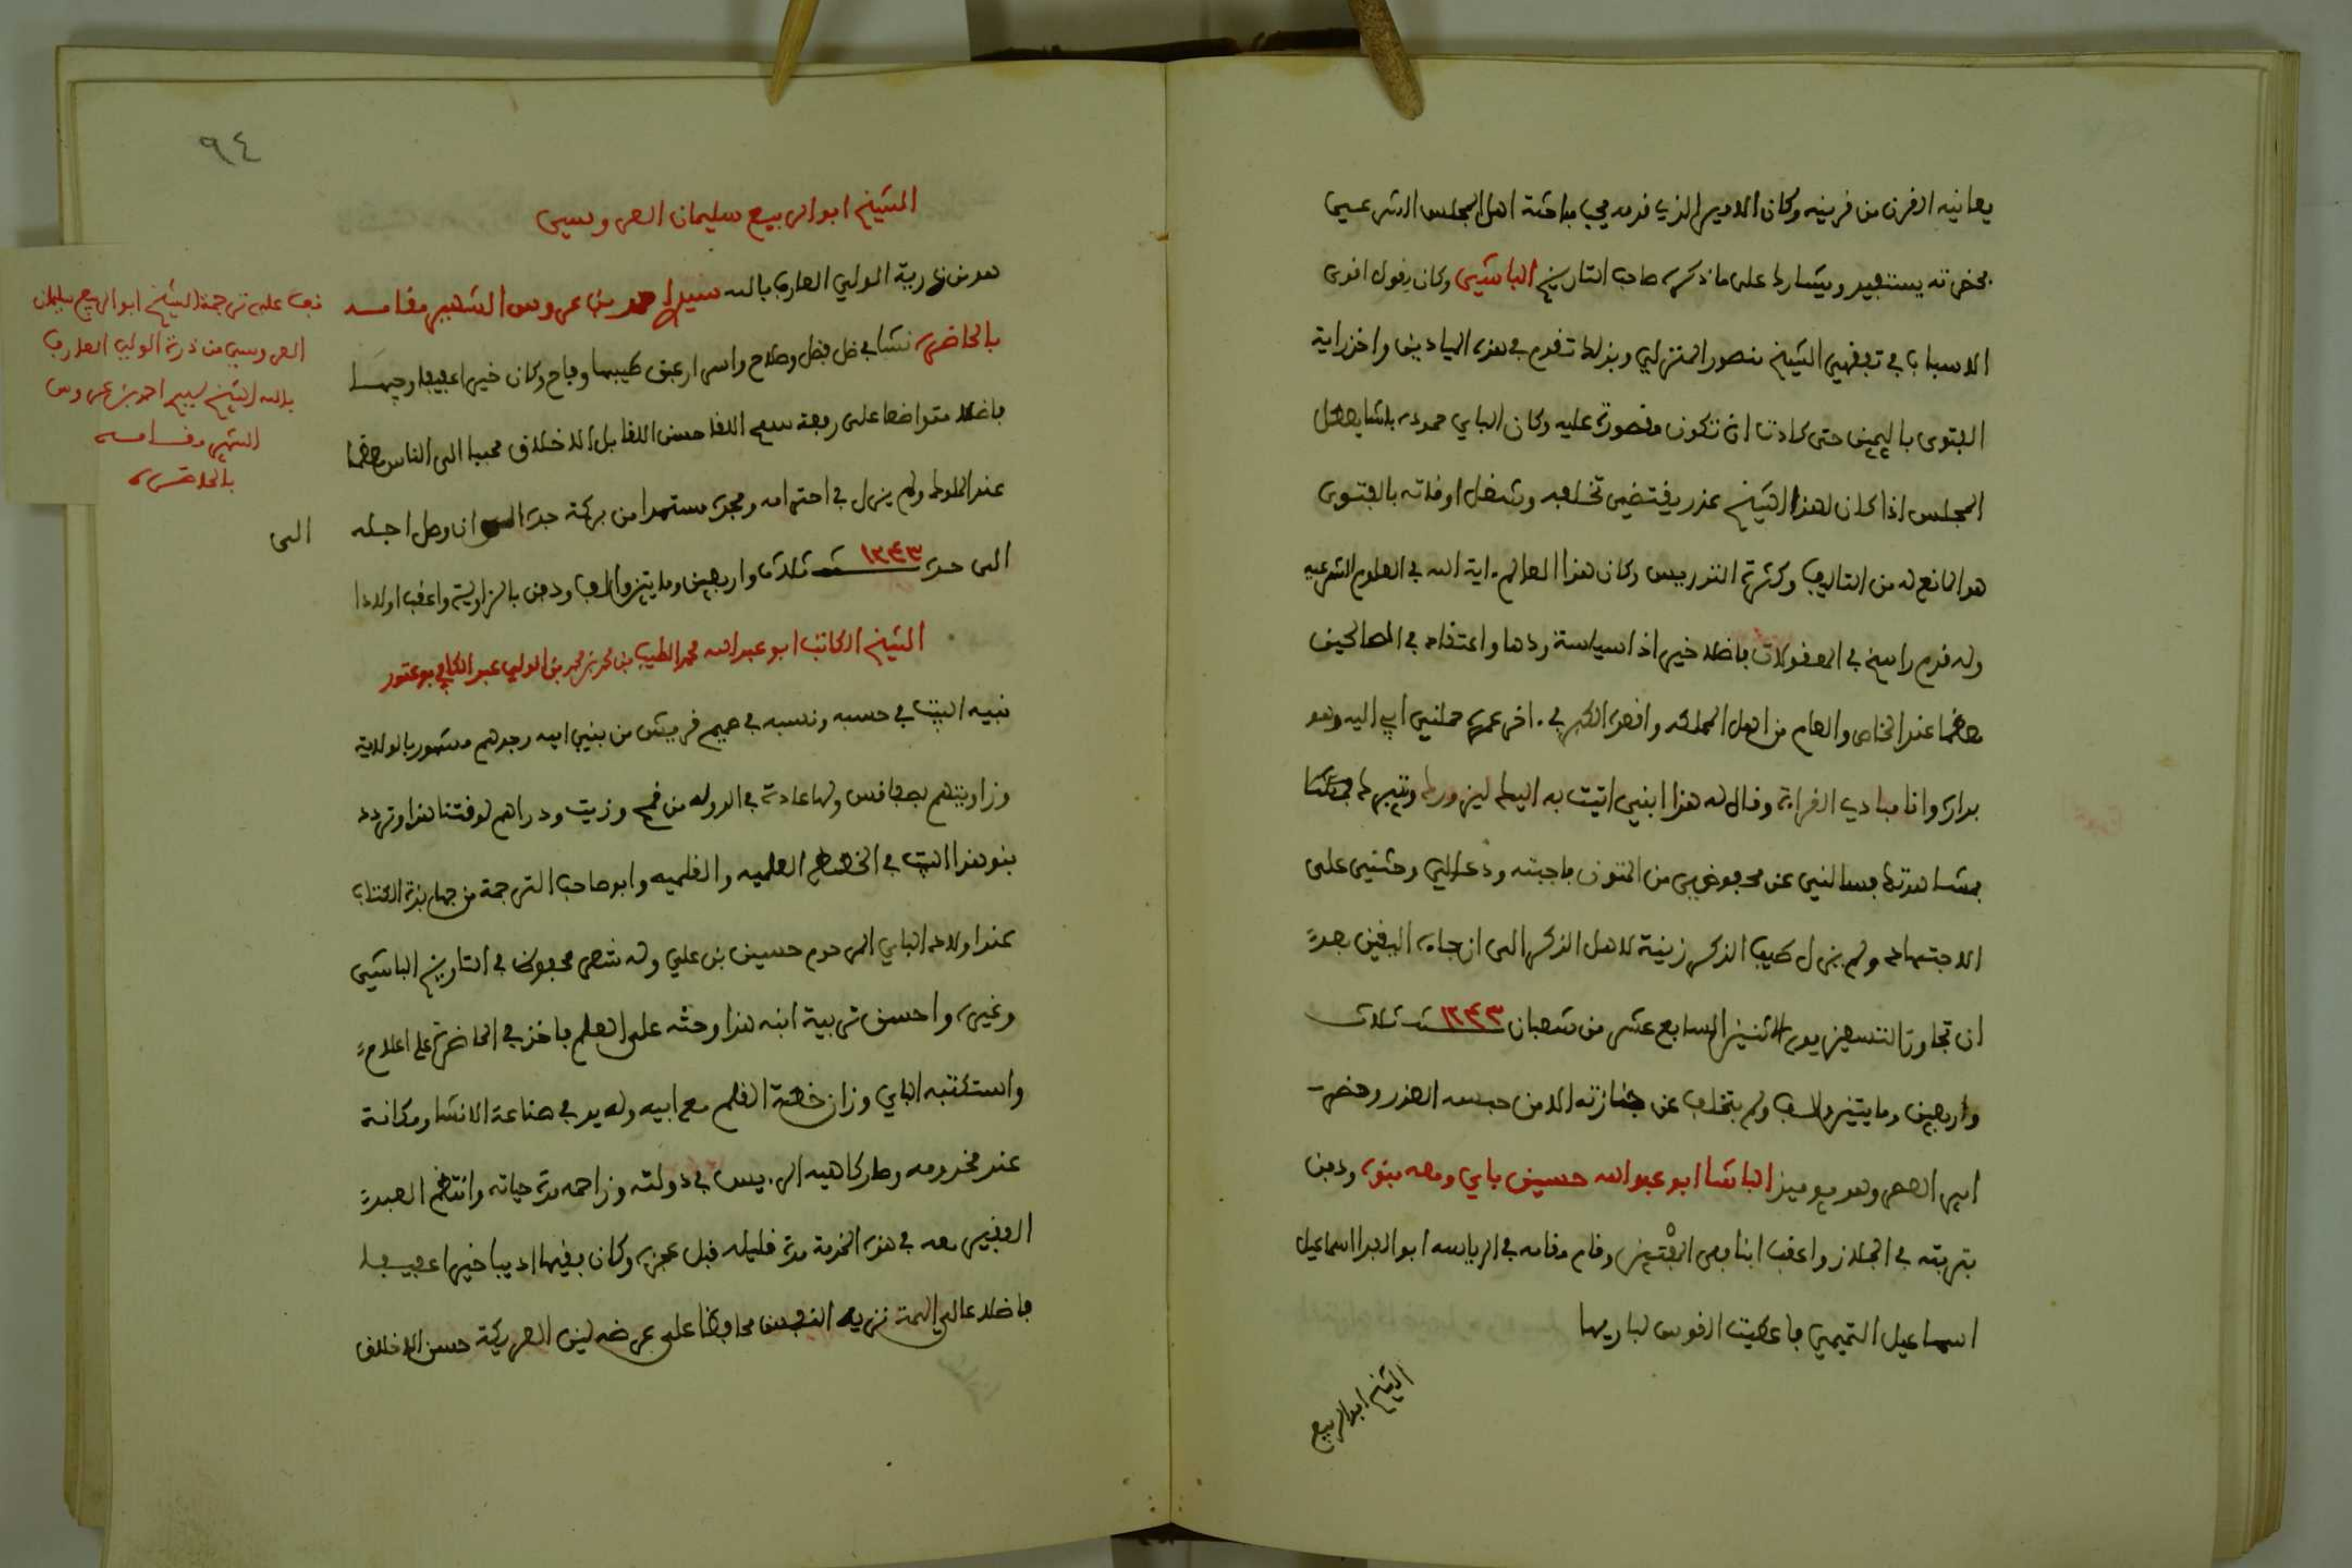 يعانيه القرن من قرينه وكان الامير الذي قدمه يحب مباحثة اهل المجلس الشرعيي
بحضرته يستفيد ويتشارك على ما ذكره صاحب التاريخ الباشيي وكان يقول اقوى
الاسباب في تفقهي الشيخ منصور المنزلي وبذلك تقدم في هذه الميادين واخذ راية
الفتوى باليمين حتى كادت ان تكون مقصورة عليه وكان الباي حمودة باشا يعطل
المجلس اذا كان لهذا الشيخ عذر يقتضي تخلفه وشغل اوقاته بالفتوى
هو المانع له من التاليف وكثرة التدريس وكان هذا العالم اية الله في العلوم الشرعيه
وله قدم راسخ في المعقولات فاضلا خيرا ذا سياسة ودها واعتقاد في الصالحين
معظما عند الخاص والعام من اهل المملكه واقعده الكبر في اخر عمره حملني ابي اليه وهو
بداره وانا مبادي القراءة وقال له هذا ابني اتيت به اليك ليزورك ويتبرك
بمشاهدتك فسالني عن محفوظي من المتون فاجبته ودعا لي وحثني على
الاجتهاد ولم يزل طيب الذكر زينة لاهل الذكر الى ان جاه اليقين بعد
ان تجاوز التسعين يوم الاثنين السابع عشر من شعبان ١٢٤٣ سنة ثلاث
واربعين ومايتين والف ولم يتخلف عن جنازته الا من حبسه العذر وحضر
امير العصر وهو يوميذ الباشا ابو عبد الله حسين باي ومعه بنوه ودفن
بتربته في الجلاز واعقب ابنا من المفتين وقام مقامه في الرياسه ابو الفدا اسماعيل
اسماعيل التميمي فاعطيت القوس لباريها
الشيخ ابو الربيع
٩٤
الشيخ ابو الربيع سليمان العروسي
هو من ذرية الولي العارف بالله سيدي احمد بن عروس الشهير مقامه
بالحاضرة نشا في ظل فضل وصلاح واسرار عبق طيبها وفاح وكان خيرا عفيفا وجيها
فاضلا متواضعا على رفعة سمح اللقا حسن اللقا بل الاخلاق محببا الى الناس معظما
عند الملوك ولم يزل في احترامه ومجده مستمدا من بركة جده الى ان وصل اجله
الى حده ١٢٤٣ سنة ثلاث واربعين ومايتين والف ودفن بالزاوية واعقب اولادا
الشيخ الكاتب ابو عبد الله محمد الطيب بن محمد بن محمد بن الولي عبد الكافي بوعتور
نبيه البيت في حسبه ونسبه في صميم قريش من بني اميه وجدهم مشهور بالولاية
وزاويتهم بصفاقس ولها عادة في الدوله من قمح وزيت ودراهم لوقتنا هذا وتردد
بنو هذا البيت في الخطط العلميه والقلميه وابو صاحب الترجمة من جهابذة الكتاب
عند اولاد الباي المرحوم حسين بن علي وله شعر محفوظ في التاريخ الباشيي
وغيره واحسن تربية ابنه هذا وحثه على العلم فاخذ في الحاضرة على اعلام
واستكتبه الباي وزان خطة القلم مع ابيه وله يد في صناعة الانشا ومكانة
عند مخدومه وصار كاهية الريس في دولته وزاحمه مدة حياته وانتظم العبد
الفقير معه في هذه الخدمة مدة قليله قبل عجزه وكان فقيها اديبا خيرا عفيفا
فاضلا عالي الهمة نزيه النفس محافظا على عرضه لين العريكة حسن الاخلاق
قف على ترجمة الشيخ ابو الربيع سليمان
العروسي من ذرية الولي العارف
بالله الشيخ سيدي احمد بن عروس
الشهير مقامه
بالحاضرة
الى